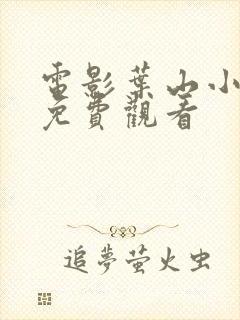 電影葉山小
免費觀看
追夢萤火虫